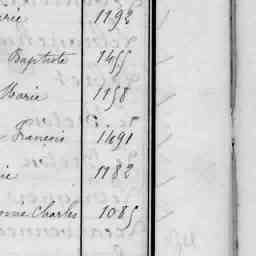 rie 1192
Baptiste 1455
Marie 1158
François 1491
ie 1182
Charles 1085